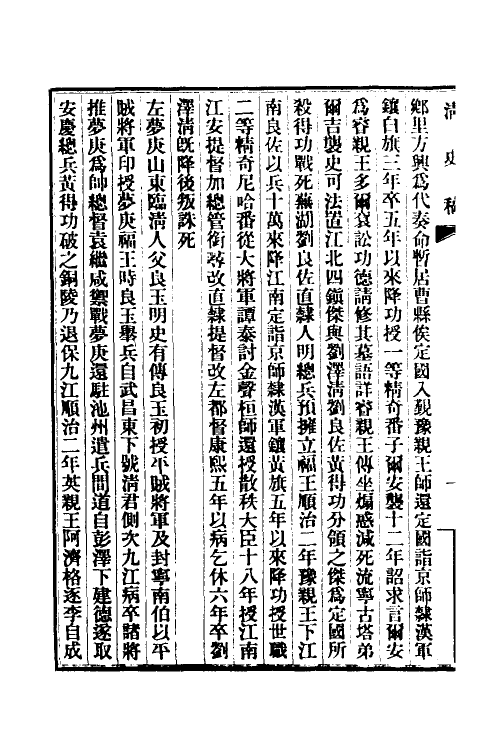 清史稿
鄉里方興爲代奏命暫居曹縣俟定國入覲豫親王師還定國詣京師隸漢軍
鑲白旗三年卒五年以來降功授一等精奇番子爾安襲十二年詔求言爾安
爲睿親王多爾袞訟功德請修其墓語詳睿親王傳坐煽惑減死流寧古塔弟
爾吉襲史可法置江北四鎭傑與劉澤淸劉良佐黃得功分領之傑爲定國所
殺得功戰死蕪湖劉良佐直隸人明總兵預擁立福王順治二年豫親王下江
南良佐以兵十萬來降江南定詣京師隸漢軍鑲黃旗五年以來降功授世職
二等精奇尼哈番從大將軍譚泰討金聲桓師還授散秩大臣十八年授江南
江安提督加總管銜尋改直隸提督改左都督康熙五年以病乞休六年卒劉
澤淸旣降後叛誅死
左夢庚山東臨淸人父良玉明史有傳良玉初授平賊將軍及封寧南伯以平
賊將軍印授夢庚福王時良玉舉兵自武昌東下號淸君側次九江病卒諸將
推夢庚爲帥總督袁繼咸禦戰夢庚還駐池州遣兵間道自彭澤下建德遂取
安慶總兵黃得功破之銅陵乃退保九江順治二年英親王阿濟格逐李自成
一